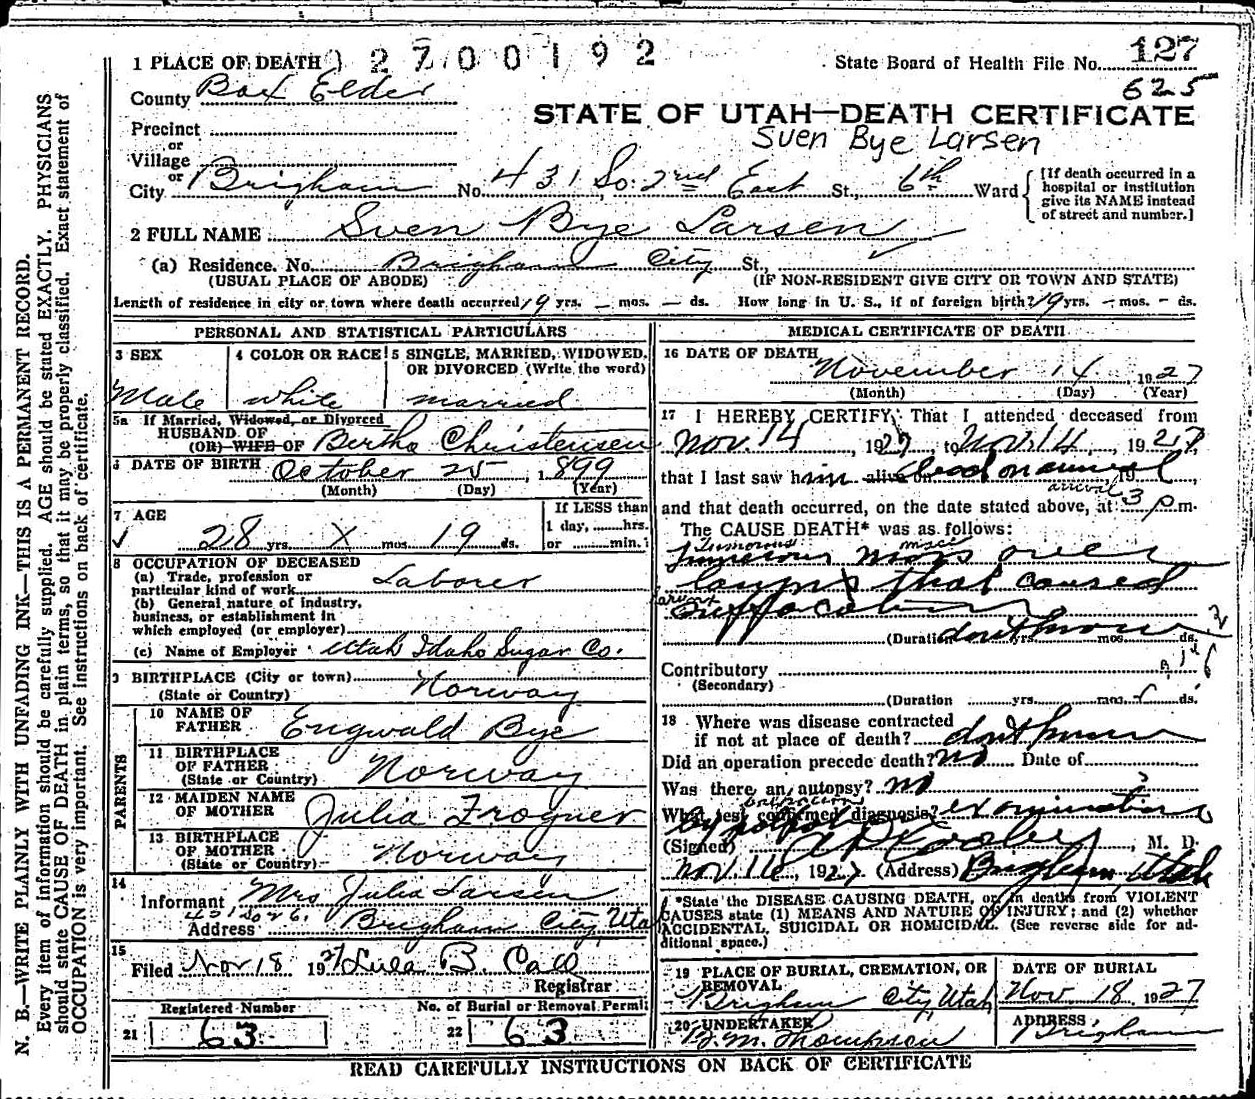 2700192
1 PLACE OF DEATH
State Board of Health File No. 127
625
County Box Elder
STATE OF UTAH—DEATH CERTIFICATE
Sven Bye Larsen
Precinct
or
Village
or
City Brigham No. 431 So. 2nd East St., 6th Ward
[If death occurred in a hospital or institution give its NAME instead of street and number.]
2 FULL NAME Sven Bye Larsen
(a) Residence. No. Brigham City St.,
(USUAL PLACE OF ABODE) (IF NON-RESIDENT GIVE CITY OR TOWN AND STATE)
Length of residence in city or town where death occurred 19 yrs. – mos. – ds. How long in U. S., if of foreign birth? 19 yrs. – mos. – ds.
PERSONAL AND STATISTICAL PARTICULARS
3 SEX Male
4 COLOR OR RACE white
5 SINGLE, MARRIED, WIDOWED, OR DIVORCED (Write the word) married
5a If Married, Widowed, or Divorced
HUSBAND OF
(OR) WIFE OF Bertha Christensen
6 DATE OF BIRTH October 25, 1899
(Month) (Day) (Year)
7 AGE 28 yrs. X mos. 19 ds.
If LESS than
1 day, ......hrs.
or ......min.
8 OCCUPATION OF DECEASED
(a) Trade, profession or
particular kind of work Laborer
(b) General nature of industry,
business, or establishment in
which employed (or employer)
(c) Name of Employer Utah Idaho Sugar Co.
9 BIRTHPLACE (City or town)
(State or Country) Norway
PARENTS
10 NAME OF
FATHER Engwald Bye
11 BIRTHPLACE
OF FATHER
(State or Country) Norway
12 MAIDEN NAME
OF MOTHER Julia Frogner
13 BIRTHPLACE
OF MOTHER
(State or Country) Norway
14
Informant Mrs Julia Larsen
Address Brigham City, Utah
15
Filed Nov 18 1927 Lula B. Call
Registrar
Registered Number
21 63
No. of Burial or Removal Permit
22 63
MEDICAL CERTIFICATE OF DEATH
16 DATE OF DEATH
November 14 1927
(Month) (Day) (Year)
17 I HEREBY CERTIFY, That I attended deceased from
Nov. 14, 1927, to Nov. 14, 1927,
that I last saw him alive on dead on arrival 19
arrival
and that death occurred, on the date stated above, at 3 p.m.
The CAUSE DEATH* was as follows:
Tumorous mass over
larynx that caused
suffocation
(Duration dont know yrs. mos. ds.
Contributory
(Secondary)
(Duration yrs. mos. ds.
18 Where was disease contracted
if not at place of death? dont know
Did an operation precede death? no Date of
Was there an autopsy? no
What test confirmed diagnosis? examination
(Signed) , M. D.
Nov. 16, 1927. (Address) Brigham, Utah
*State the DISEASE CAUSING DEATH, or in deaths from VIOLENT
CAUSES state (1) MEANS AND NATURE OF INJURY; and (2) whether
ACCIDENTAL, SUICIDAL OR HOMICIDAL. (See reverse side for ad-
ditional space.)
19 PLACE OF BURIAL, CREMATION, OR
REMOVAL
Brigham City, Utah
DATE OF BURIAL
Nov. 18, 1927
20 UNDERTAKER
B. M. Thompson
ADDRESS
Brigham
READ CAREFULLY INSTRUCTIONS ON BACK OF CERTIFICATE
N. B.—WRITE PLAINLY WITH UNFADING INK—THIS IS A PERMANENT RECORD.
Every item of information should be carefully supplied. AGE should be stated EXACTLY. PHYSICIANS
should state CAUSE OF DEATH in plain terms, so that it may be properly classified. Exact statement of
OCCUPATION is very important. See instructions on back of certificate.